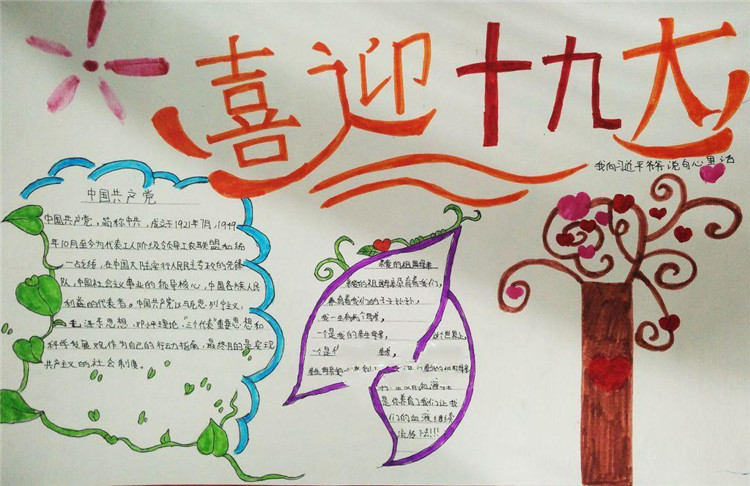 喜迎十九大
我向习近平爷爷说句心里话
中国共产党
中国共产党，简称中共，成立于1921年7月，1949
年10月至今为代表工人阶级领导工农联盟和统
一战线，在中国大陆实行人民民主专政的
队，中国社会议事业的领导核心，中国各族人民
利益的代表者。中国共产党以马克思列宁主义，
毛泽东思想，邓小平理论，"三个代表"重要思想和
科学发展观作为自己的行动指南，最终目的是实现
共产主义的社会制度。
亲爱的祖国母亲
养育着我们的子子孙孙，
我一生有两个母亲，
一个是我的亲生母亲，
一个是
是你养育了我们让我
们的血液
流传下去!!!